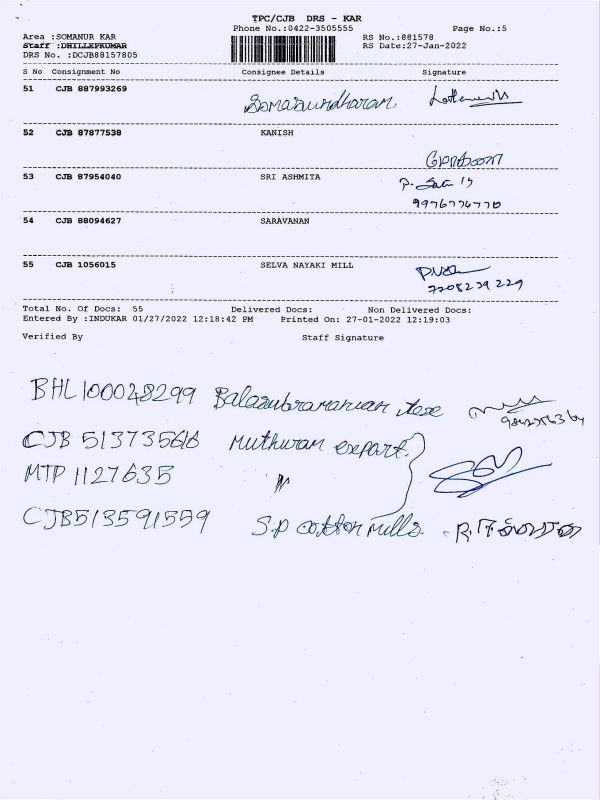 TPC/CJB DRS - KAR
Phone No.:0422-3505555 Page No.:5
Area :SOMANUR KAR RS No.:881578
Staff :DHILLEPKUMAR RS Date:27-Jan-2022
DRS No. :DCJB88157805
S No Consignment No Consignee Details Signature
51 CJB 887993269 Somasundharam
52 CJB 87877538 KANISH
53 CJB 87954040 SRI ASHMITA
9976774770
54 CJB 88094627 SARAVANAN
55 CJB 1056015 SELVA NAYAKI MILL
7708239229
Total No. Of Docs: 55 Delivered Docs: Non Delivered Docs:
Entered By :INDUKAR 01/27/2022 12:18:42 PM Printed On: 27-01-2022 12:19:03
Verified By Staff Signature
BHL 100048299 Balasubramanian
CJB 513735616 Muthuram export.
MTP 1127635 "
CJB513591559 S.P cotton mills.